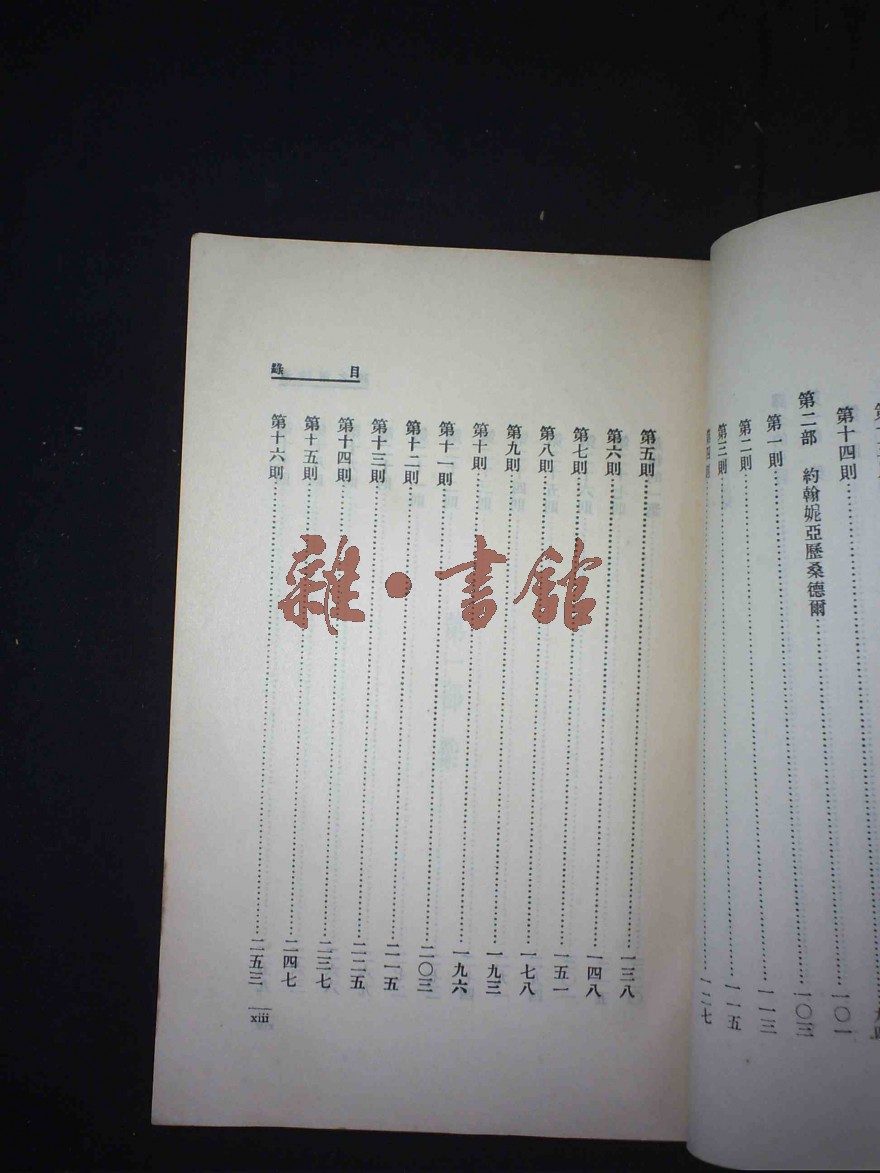 第十四則……一〇一
第二部 約翰妮亞歷桑德爾……一〇三
第一則……一一三
第二則……一一五
第三則
第四則……一二七
目錄
第五則……一三八
第六則……一四八
第七則……一五一
第八則……一七八
第九則……一九三
第十則……一九六
第十一則……二〇三
第十二則……二一五
第十三則……二二五
第十四則……二三七
第十五則……二四七
第十六則……二五三
xiii
雜·書館